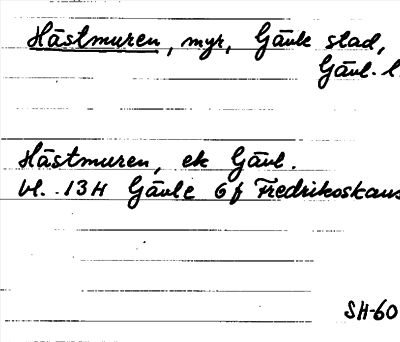 Hästmuren, myr, Gävle stad,
Gävl. l.
Hästmuren, ek Gävl.
bl. 13H Gävle 6f Fredrikskans
SH-60